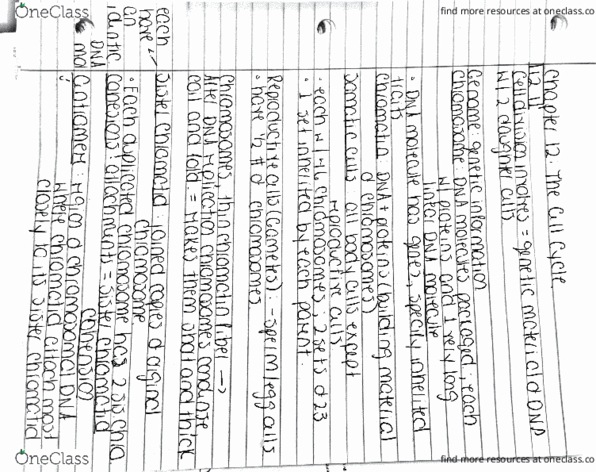 OneClass
find more resources at oneclass.co
Chapter 12: The Cell Cycle
12.1
Cell division involves = genetic material d DNA
w/ 2 daughter cells
Genome: genetic information
Chromosome: DNA molecules packaged: each
w/ proteins and 1 very long
linear DNA molecule
◦ DNA molecule has genes, specify inherited
traits
Chromatin: DNA + proteins (building material
d chromosomes)
Somatic cells: all body cells except
reproductive cells
· each w/ 46 chromosomes; 2 sets d 23
· 1 set inherited by each parent.
Reproductive cells (Gametes): - sperm/egg cells
◦ have ½ # d chromosomes
Chromosomes, thin chromatin fiber →
After DNA replication chromosomes condense
coil and fold = makes them short and thick
Sister chromatid: joined copies d original
chromosome
· Each duplicated chromosome has 2 sis chrd
cohesions: attachments = sister chromatid
cohesion
Centromere: region d chromosomal DNA
where chromatid attach most
closely to its sister chromatid
each
have
an
DNA
OneClass
find more resources at oneclass.co